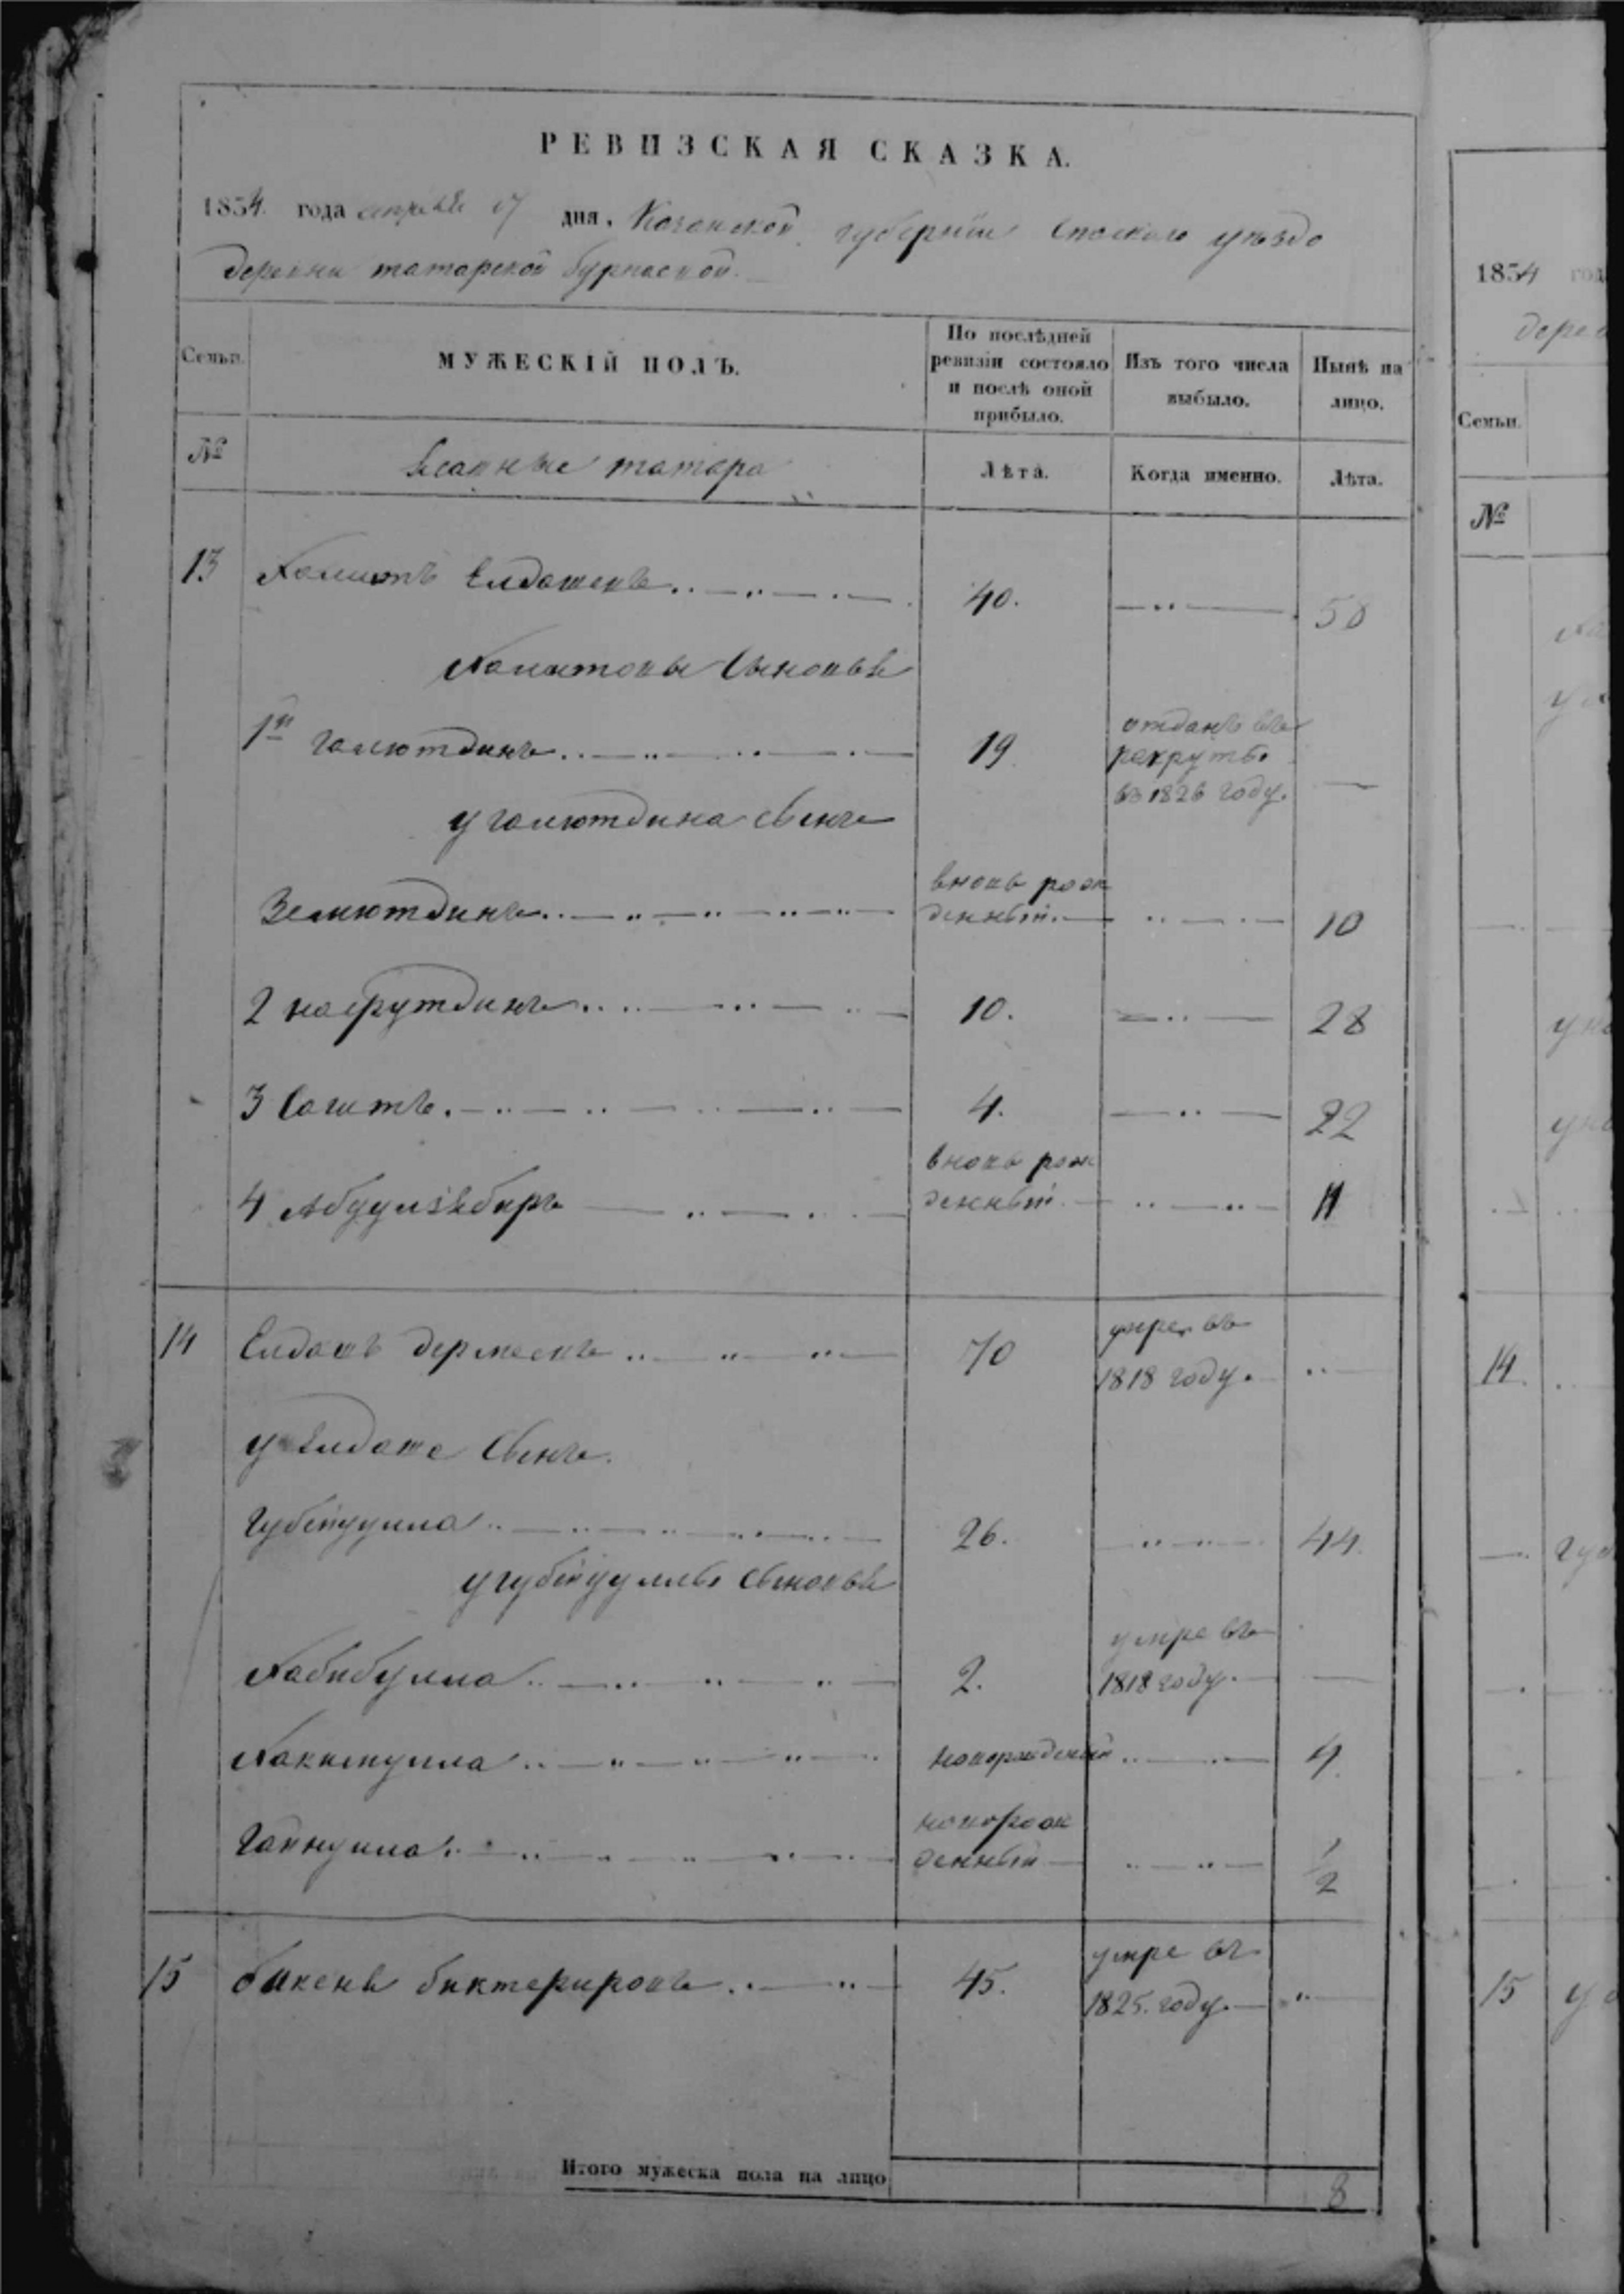 РЕВИЗСКАЯ СКАЗКА.
1834. года апреля 17 дня. Казанской губернии Спаского уезда
деревни татарской бурнаевой.
Семьи. МУЖЕСКІЙ ПОЛЪ. По послѣдней ревизіи состояло и послѣ оной прибыло. Изъ того числа выбыло. Нынѣ на лицо.
№ Ясашные татара Лѣта. Когда именно. Лѣта.
13 Халитъ Елдашевъ 40. 58
Халитовы Сыновья
1й галютдинъ 19. отданъ въ рекруты въ 1826 году.
у галютдина сынъ
Зелютдинъ вновь рож денный. 10
2 насрутдинъ 10. 28
3 Сагитъ 4. 22
4 Абдулзебирь вновь рож денный 11
14 Елдашъ дермеевъ 70 умре въ 1818 году.
у Елдаша Сынъ.
Губейдулла 26. 44.
у губейдуллы сыновья
Хабибулла 2. умре въ 1818 году.
Хакимулла новорожденный 4.
Гайнулла новорож денный 1/2
15 бикень биктемировъ 45. умре въ 1825. году.
Итого мужеска пола на лицо 8
1834 год
дере
Семьи.
№
14.
15 у